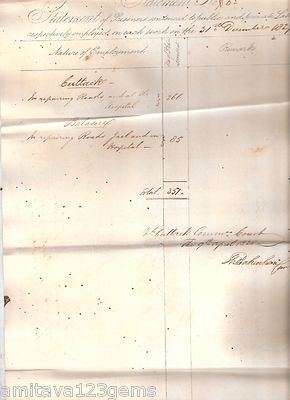 Statement of Prisoners sentenced to public and private Lab
respectively employed on each work on the 31st December 18
Nature of Employment
No of Prisoners
Remarks
Cuttack
In repairing Roads and at the
Hospital
266
Balasore
In repairing Roads Jail and in
Hospital
85
Total 351
Cuttack Commrs Court
The April
amitava123gems